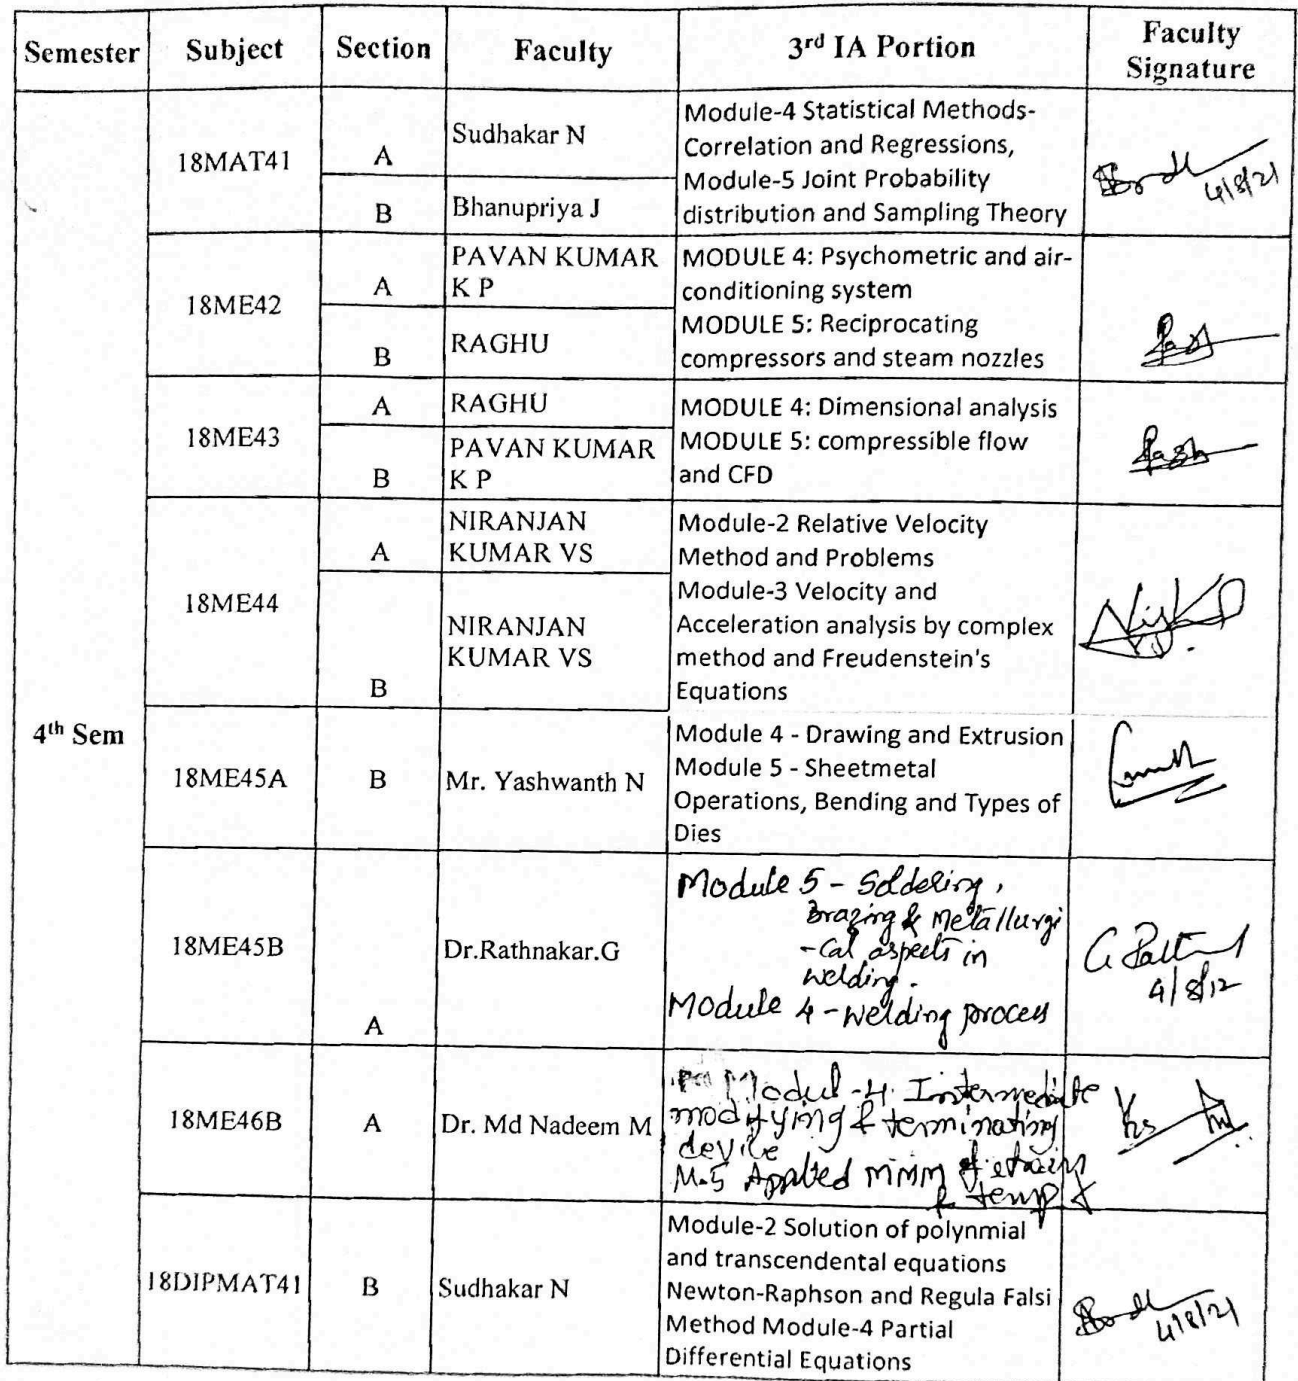 Semester Subject Section Faculty 3rd IA Portion Faculty
Signature
4th Sem
18MAT41
A
Sudhakar N
B
Bhanupriya J
Module-4 Statistical Methods-
Correlation and Regressions,
Module-5 Joint Probability
distribution and Sampling Theory
4/8/21
18ME42
A
PAVAN KUMAR
K P
B
RAGHU
MODULE 4: Psychometric and air-
conditioning system
MODULE 5: Reciprocating
compressors and steam nozzles
18ME43
A
RAGHU
B
PAVAN KUMAR
K P
MODULE 4: Dimensional analysis
MODULE 5: compressible flow
and CFD
18ME44
A
NIRANJAN
KUMAR VS
B
NIRANJAN
KUMAR VS
Module-2 Relative Velocity
Method and Problems
Module-3 Velocity and
Acceleration analysis by complex
method and Freudenstein's
Equations
18ME45A
B
Mr. Yashwanth N
Module 4 - Drawing and Extrusion
Module 5 - Sheetmetal
Operations, Bending and Types of
Dies
18ME45B
A
Dr.Rathnakar.G
Module 5 - Soldering,
Brazing & Metallurgi
-cal aspects in
welding.
Module 4 - Welding process
4/8/12
18ME46B
A
Dr. Md Nadeem M
Modul-4. Intermediate
modifying & terminating
device
M.5 Applied MMM of
& temp
18DIPMAT41
B
Sudhakar N
Module-2 Solution of polynmial
and transcendental equations
Newton-Raphson and Regula Falsi
Method Module-4 Partial
Differential Equations
4/8/21